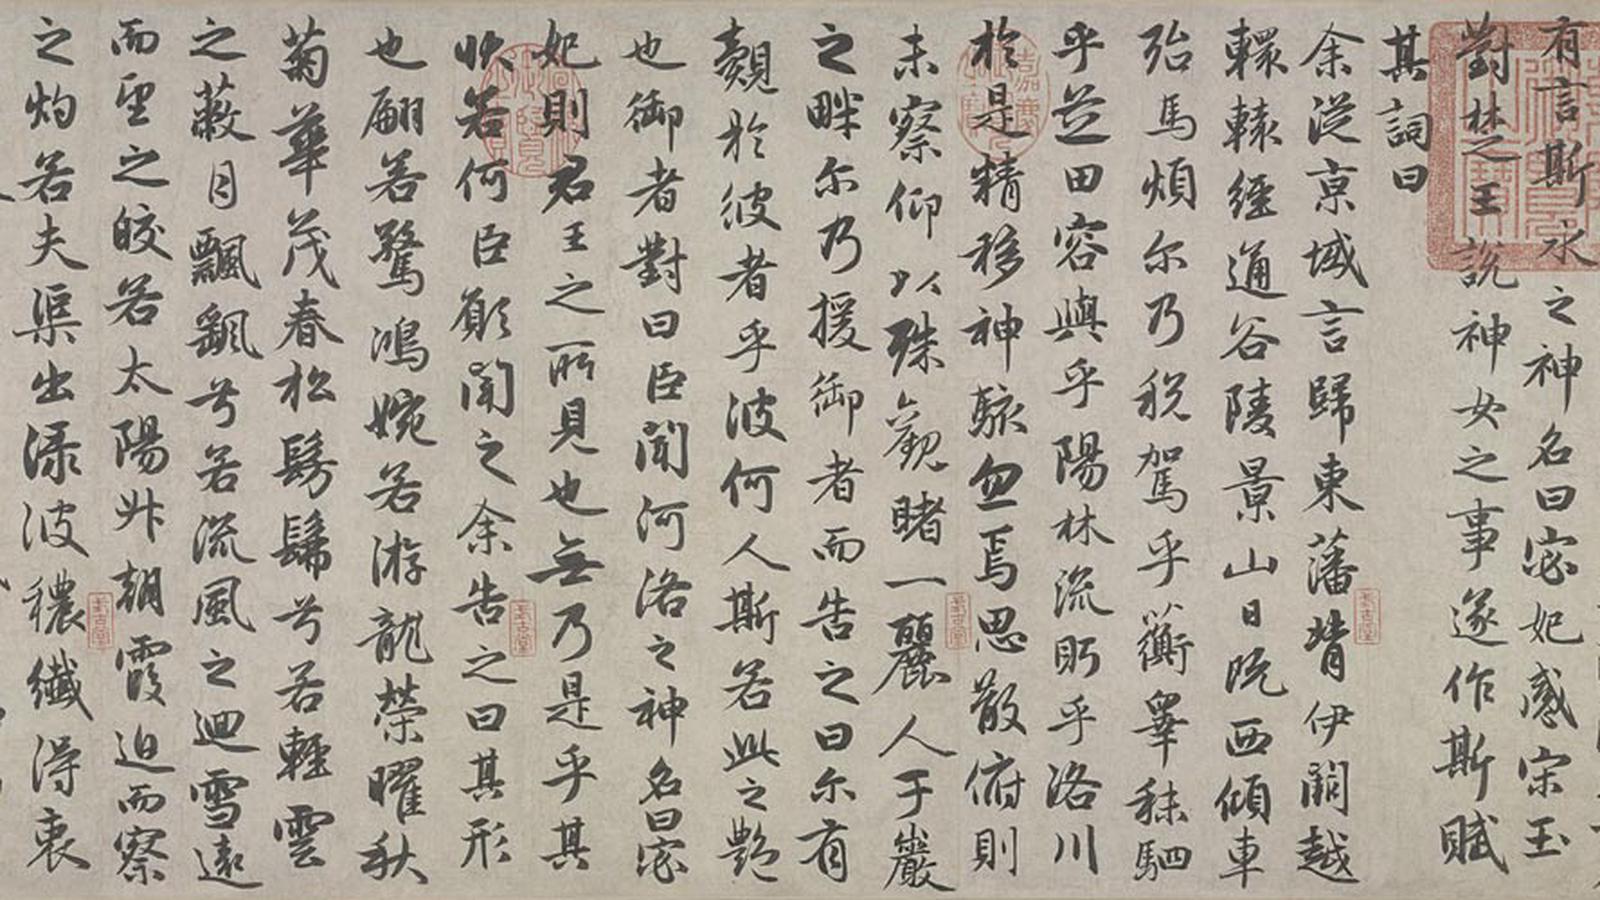 有言斯水之神名曰宓妃感宋玉
對楚王說神女之事遂作斯賦
其詞曰
余從京域言歸東藩背伊闕越
轘轅經通谷陵景山日既西傾車
殆馬煩尒乃稅駕乎蘅皋秣駟
乎芝田容與乎陽林流眄乎洛川
於是精移神駭忽焉思散俯則
未察仰以殊觀睹一麗人于巖
之畔尒乃援御者而告之曰尒有
覿於彼者乎彼何人斯若此之艷
也御者對曰臣聞河洛之神名曰宓
妃則君王之所見也無乃是乎其
狀若何臣願聞之余告之曰其形
也翩若驚鴻婉若游龍榮曜秋
菊華茂春松髣髴兮若輕雲
之蔽月飄颻兮若流風之迴雪遠
而望之皎若太陽升朝霞迫而察
之灼若夫渠出淥波穠纖得衷